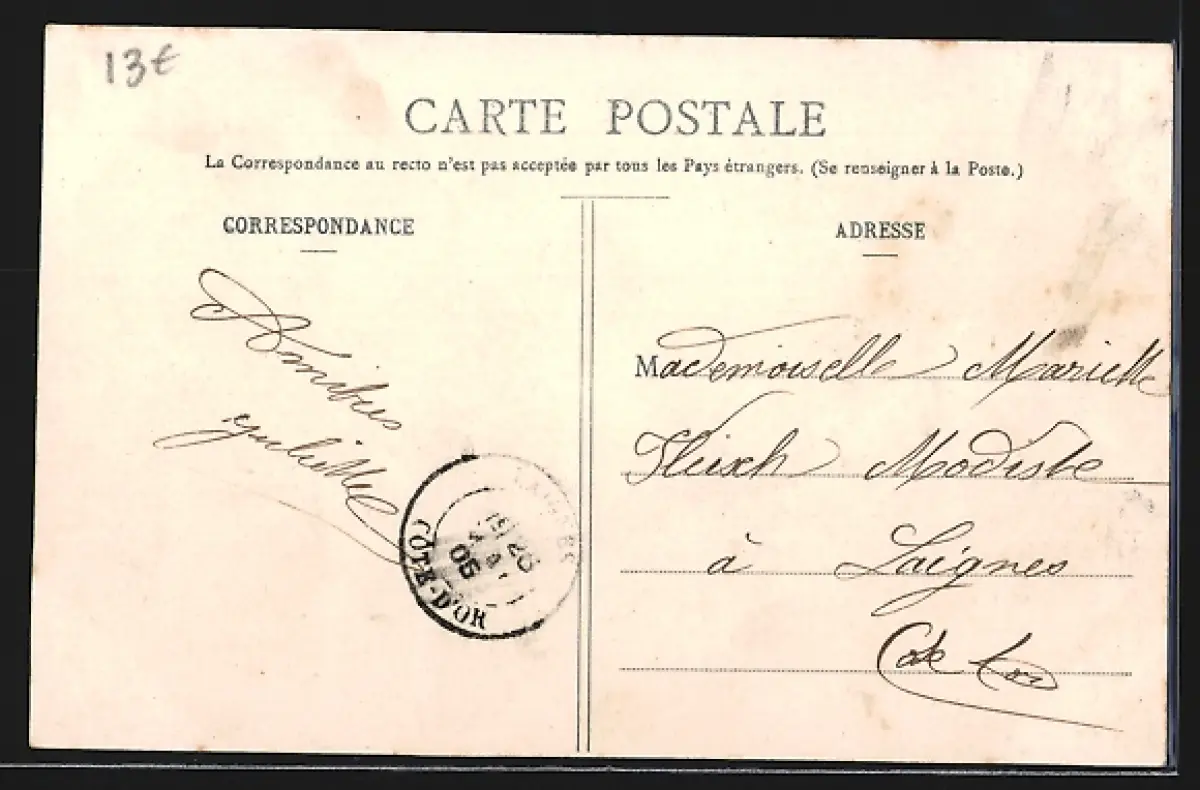 13€
CARTE POSTALE
La Correspondance au recto n'est pas acceptée par tous les Pays étrangers. (Se renseigner à la Poste.)
CORRESPONDANCE
Amitiés
yuliette
ADRESSE
Mademoiselle Mariette
Modiste
à Laignes
Cote d'or
LAIGNES
05
CÔTE-D'OR